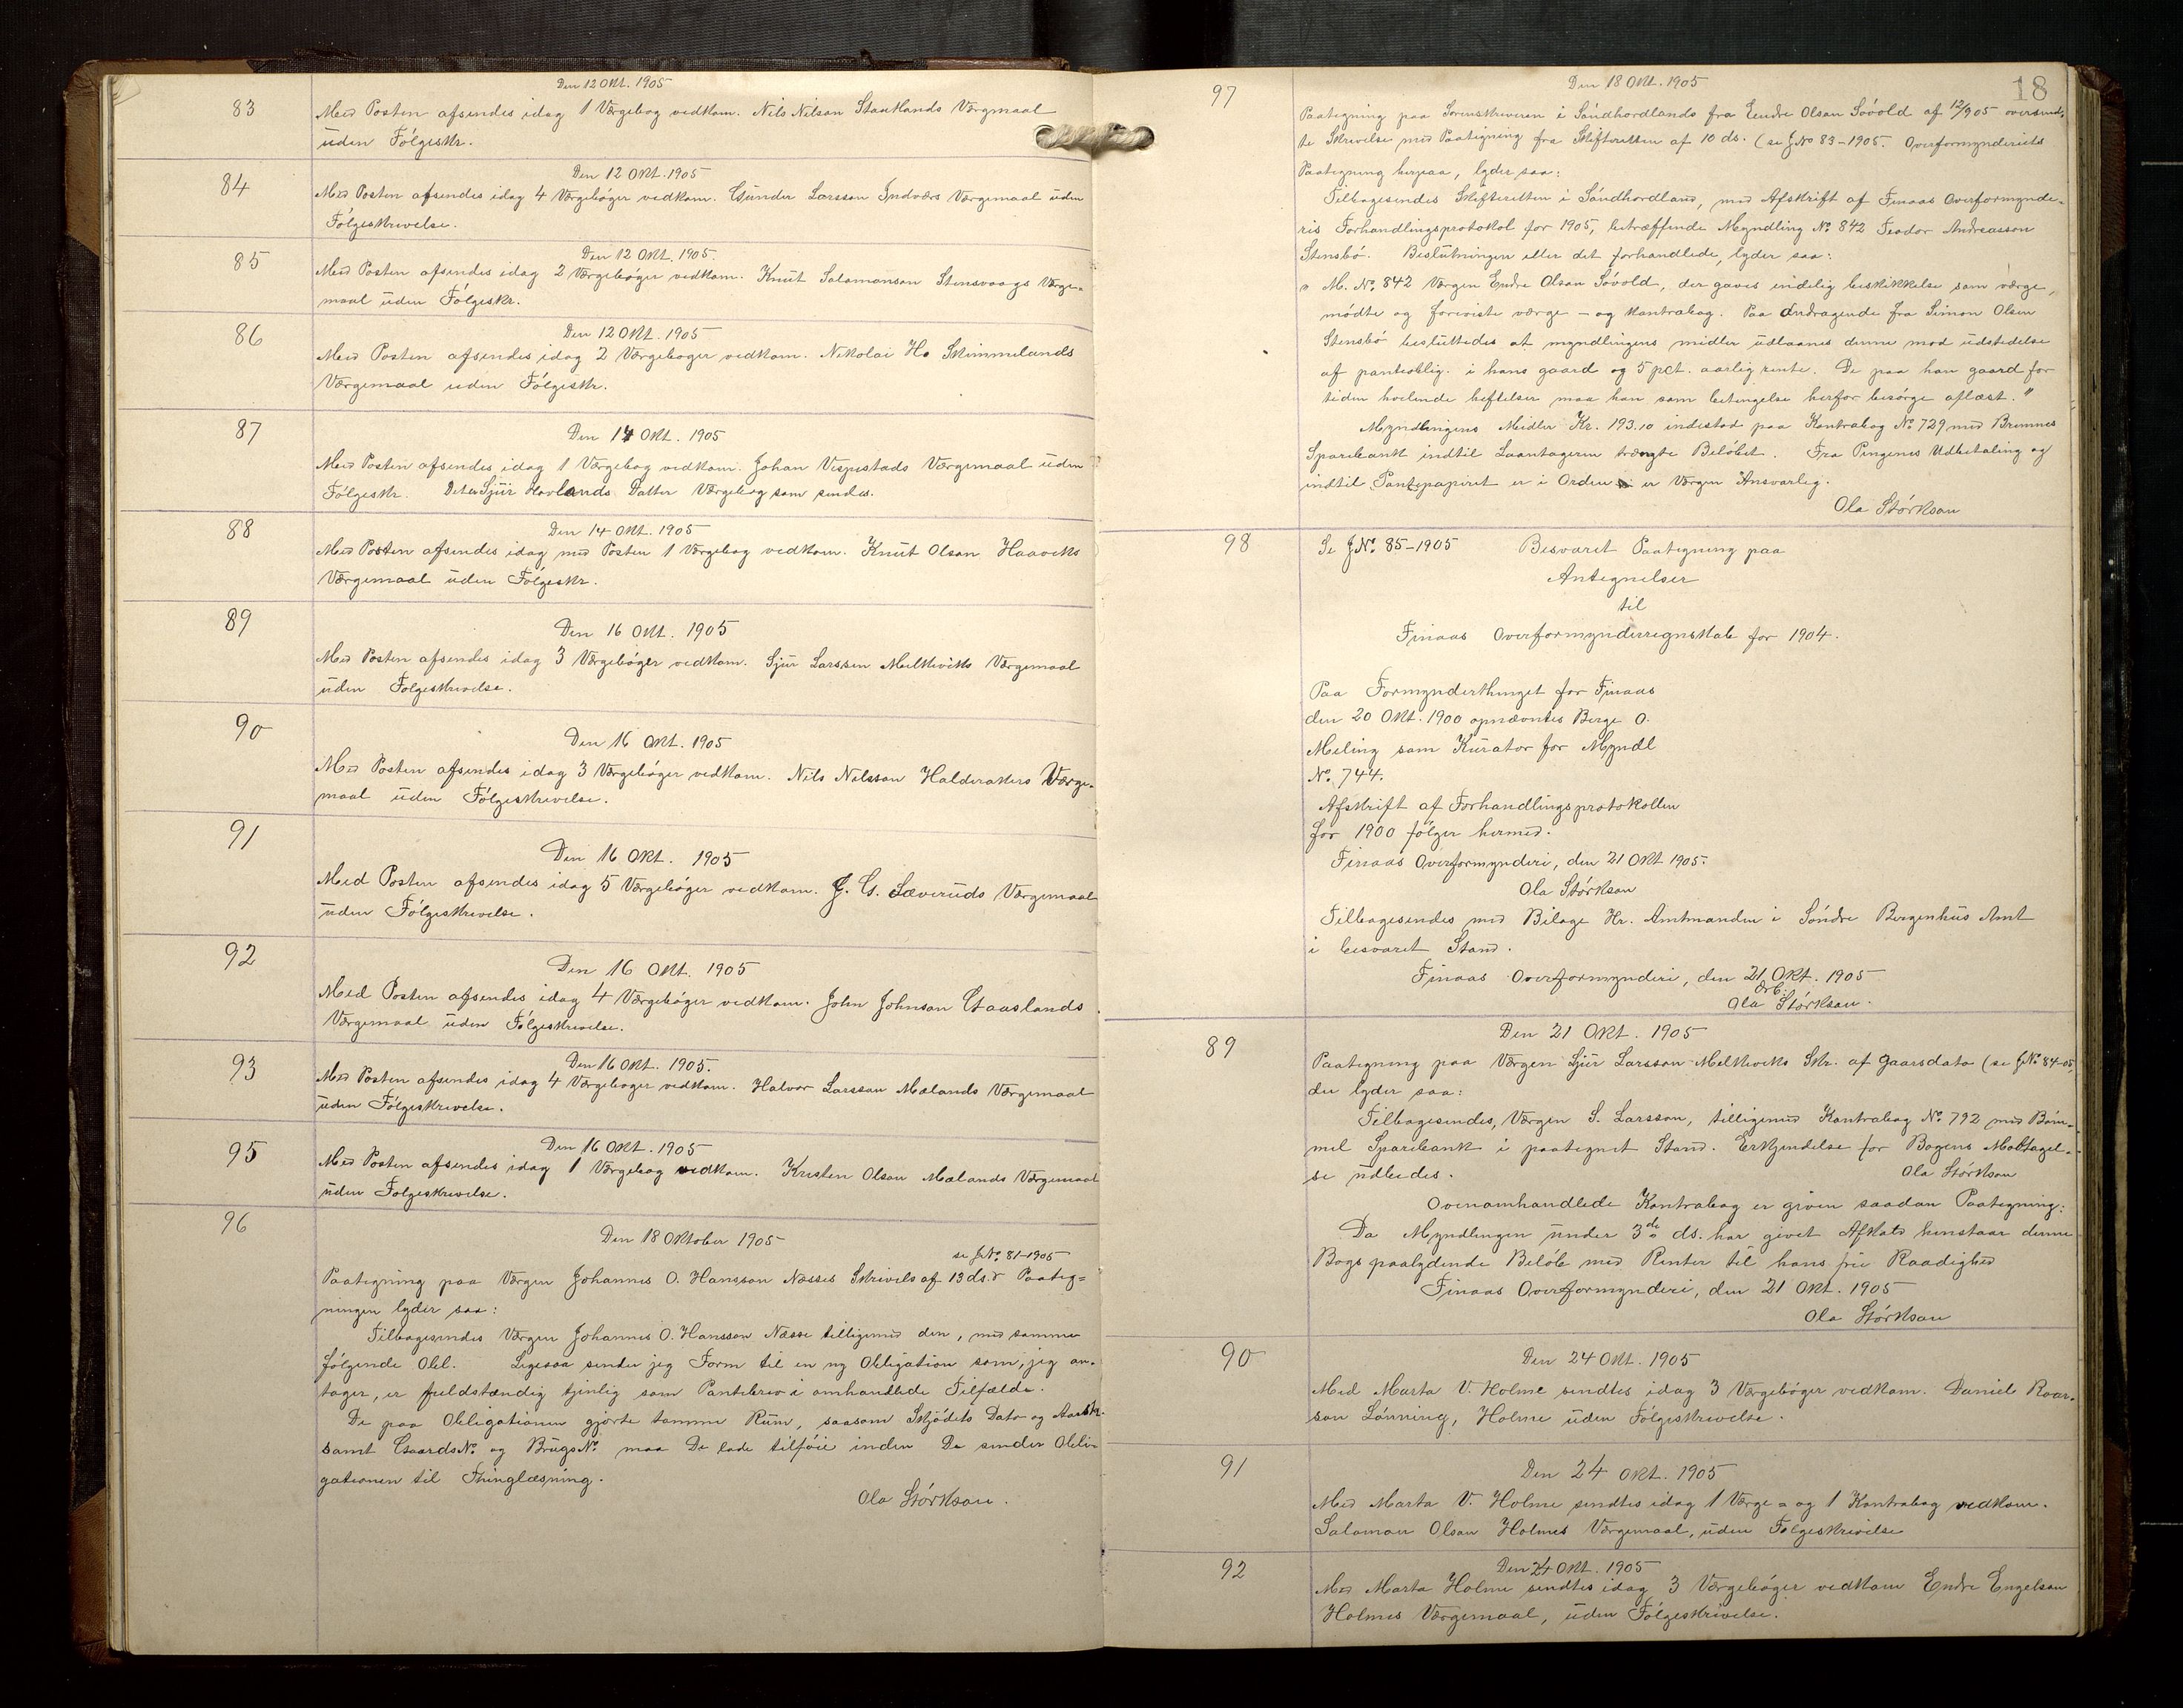 Den 12 Okt. 1905
83 Med Posten afsendes idag 1 Værgebog vedkom. Nils Nilson Stautlands Værgmaal
üden Følgeskr.
Den 12 Okt. 1905
84 Med Posten afsendes idag 4 Værgebøger vedkom. Gunder Larsson Indværs Værgemaal üden
Følgeskrivelse.
Den 12 Okt. 1905.
85 Med Posten afsendes idag 2 Værgebøger vedkom. Knut Salamonson Stensvaags Værge-
maal üden Følgeskr.
Den 12 Okt. 1905
86 Med Posten afsendes idag 2 Værgebøger vedkom. Nikolai H. Skimmelands
Værgemaal uden Følgeskr.
Den 14 Okt. 1905
87 Med Posten afsendes idag 1 Værgebog vedkom. Johan Vespestads Værgemaal üden
Følgeskr. Det er Sjür Hovlands Datter Værgebog som sendes.
Den 14 Okt. 1905
88 Med Posten afsendes idag med Posten 1 Værgebog vedkom. Knüt Olson Haaviks
Værgemaal üden Følgeskr.
Den 16 Okt. 1905
89 Med Posten afsendes idag 3 Værgebøger vedkom. Sjür Larssen Melkeviks Værgemaal
üden Følgeskrivelse.
Den 16 Okt. 1905
90 Med Posten afsendes idag 3 Værgebøger vedkom. Nils Nelsson Halderakers Værge-
maal üden Følgeskrivelse.
Den 16 Okt. 1905
91 Med Posten afsendes idag 5 Værgebøger vedkom. J. G. Sæveruds Værgemaal
üden Følgeskrivelse.
Den 16 Okt. 1905
92 Med Posten afsendes idag 4 Værgebøger vedkom. John Johnson Gaaslands
Værgemaal üden Følgeskrivelse.
Den 16 Okt. 1905.
93 Med Posten afsendes idag 4 Værgebøger vedkom. Halvor Larsson Mælands Værgemaal
üden Følgeskrivelse.
Den 16 Okt. 1905
95 Med Posten afsendes idag 1 Værgebog vedkom. Kristen Olson Mælands Værgemaal
üden Følgeskrivelse.
96 Den 18 Oktober 1905
se JNo. 81-1905
Paategning paa Værgen Johannes O. Hansson Næsses Skrivels af 13 ds. Paateg=
ningen lyder saa:
Tilbagesendes Værgen Johannes O. Hansson Næsse tilligemed den, med samme
følgende Obl. Ligesaa sender jeg Form til en ny Obligation som, jeg an-
tager, er fuldstændig tjenlig som Pantebrev i omhandlede Tilfælde.
De paa Obligationen gjorte tomme Rüm, saasom Skjødets Dato og Aarstr.
samt GaardsNo. og BrügsNo. maa De lade tilføie inden De sender Obli-
gationen til Thinglæsning.
Ola Størkson.
18
Den 18 Okt. 1905
97 Paategning paa Sorenskriveren i Søndhordlands fra Endre Olson Søvold af 12/9 05 oversend-
te Skrivelse med Paategning fra Skifteretten af 10 ds. (se JNo 83-1905. Overformynderiets
Paategning herpaa, lyder saa:
Tilbagesendes Skifteretten i Søndhordland, med Afskrift af Finaas Overformynde-
ris Forhandlingsprotokol for 1905, betræffende Myndling No. 842 Teodor Andreasson
Stensbø. Beslütningen eller det forhandlede, lyder saa:
" M. No. 842 Værgen Endre Olson Søvold, der gaves endelig beskikkelse som værge,
mødte og foreviste værge - og kontrabog. Paa andragende fra Simon Olsen
Stensbø beslüttedes at myndlingens midler üdlaanes denne mod üdstedelse
af panteoblig. i hans gaard og 5 pct. aarlig rente. De paa han gaard for
tiden hvelende heftelser maa han som betingelse herfor besørge aflæst."
Myndlingens Midler Kr. 193.10 indestod paa Kontrabog No. 729 med Bremnes
Sparebank indtil Laantageren trængte Beløbet. Fra Pengenes Udbetaling og
indtil Pantepapiret er i Orden er Værgen Ansvarlig.
Ola Størkson
98 Se JNo. 85-1905 Besvaret Paategning paa
Antegnelser
til
Finaas Overformynderregnskab for 1904.
Paa Formynderthinget for Finaas
den 20 Okt. 1900 opnævntes Berge O.
Meling som Kürator for Myndl
No. 744.
Afskrift af Forhandlingsprotokollen
for 1900 følger hermed.
Finaas Overformynderi, den 21 Okt 1905.
Ola Størkson
Tilbagesendes med Bilage Hr. Amtmanden i Søndre Bergenhüs Amt
i besvaret Stand.
Finaas Overformynderi, den 21 Okt. 1905
Ola Størkson.
Den 21 Okt. 1905
89 Paategning paa Værgen Sjür Larsson Melkeviks Skr. af Gaarsdato (se JNo 84-05,
der lyder saa:
Tilbagesendes, Værgen S. Larsson, tilligemed Kontrabog No. 792 med Bøm-
mel Sparebank i paategnet Stand. Erkjendelse for Bogens Modtagel-
se üdbedes. Ola Størkson
Ovenomhandlede Kontrabog er given saadan Paategning:
Da Myndlingen ünder 3de ds. har givet Afkald henstaar denne
Bogs paalydende Beløb med Renter til hans frie Raadighed
Finaas Overformynderi, den 21 Okt. 1905
Ola Størkson
90 Den 24 Okt. 1905
Med Marta V. Holme sendtes idag 3 Værgebøger vedkom. Daniel Roar-
son Lønning, Holme üden Følgeskrivelse.
91 Den 24 Okt. 1905
Med Marta V. Holme sendtes idag 1 Værge= og 1 Kontrabog vedkom.
Salamon Olson Holmes Værgemaal, üden Følgeskrivelse
92 Den 24 Okt. 1905
Med Marta Holme sendtes idag 3 Værgebøger vedkom Endre Engelson
Holmes Værgemaal, üden Følgeskrivelse.